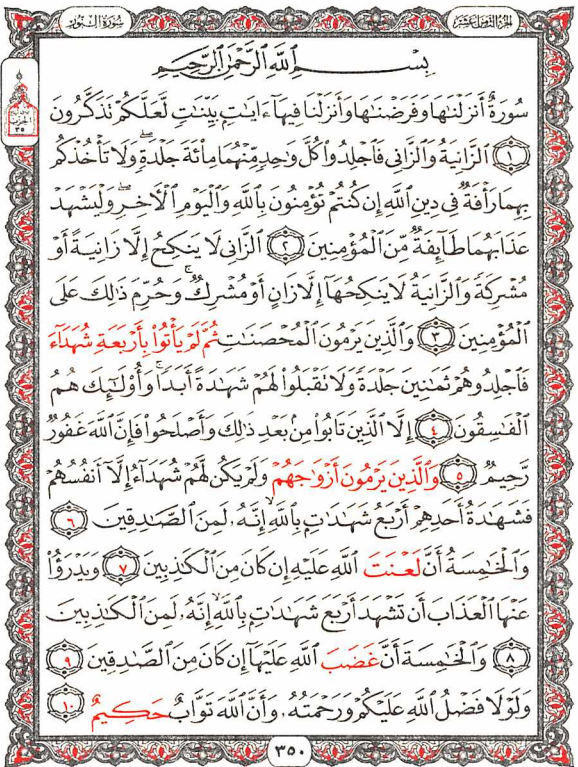 سُورَةُ النُّور
الجزء الثامن عشر
بِسْمِ ٱللَّهِ ٱلرَّحْمَٰنِ ٱلرَّحِيمِ
سُورَةٌ أَنزَلْنَٰهَا وَفَرَضْنَٰهَا وَأَنزَلْنَا فِيهَآ ءَايَٰتٍۭ بَيِّنَٰتٍ لَّعَلَّكُمْ تَذَكَّرُونَ
٣٥
١ ٱلزَّانِيَةُ وَٱلزَّانِى فَٱجْلِدُوا۟ كُلَّ وَٰحِدٍ مِّنْهُمَا مِا۟ئَةَ جَلْدَةٍ ۖ وَلَا تَأْخُذْكُم
بِهِمَا رَأْفَةٌ فِى دِينِ ٱللَّهِ إِن كُنتُمْ تُؤْمِنُونَ بِٱللَّهِ وَٱلْيَوْمِ ٱلْءَاخِرِ ۖ وَلْيَشْهَدْ
عَذَابَهُمَا طَآئِفَةٌ مِّنَ ٱلْمُؤْمِنِينَ ٢ ٱلزَّانِى لَا يَنكِحُ إِلَّا زَانِيَةً أَوْ
مُشْرِكَةً وَٱلزَّانِيَةُ لَا يَنكِحُهَآ إِلَّا زَانٍ أَوْ مُشْرِكٌ ۚ وَحُرِّمَ ذَٰلِكَ عَلَى
ٱلْمُؤْمِنِينَ ٣ وَٱلَّذِينَ يَرْمُونَ ٱلْمُحْصَنَٰتِ ثُمَّ لَمْ يَأْتُوا۟ بِأَرْبَعَةِ شُهَدَآءَ
فَٱجْلِدُوهُمْ ثَمَٰنِينَ جَلْدَةً وَلَا تَقْبَلُوا۟ لَهُمْ شَهَٰدَةً أَبَدًا ۚ وَأُو۟لَٰٓئِكَ هُمُ
ٱلْفَٰسِقُونَ ٤ إِلَّا ٱلَّذِينَ تَابُوا۟ مِنۢ بَعْدِ ذَٰلِكَ وَأَصْلَحُوا۟ فَإِنَّ ٱللَّهَ غَفُورٌ
رَّحِيمٌ ٥ وَٱلَّذِينَ يَرْمُونَ أَزْوَٰجَهُمْ وَلَمْ يَكُن لَّهُمْ شُهَدَآءُ إِلَّآ أَنفُسُهُمْ
فَشَهَٰدَةُ أَحَدِهِمْ أَرْبَعُ شَهَٰدَٰتٍۭ بِٱللَّهِ ۙ إِنَّهُۥ لَمِنَ ٱلصَّٰدِقِينَ ٦
وَٱلْخَٰمِسَةُ أَنَّ لَعْنَتَ ٱللَّهِ عَلَيْهِ إِن كَانَ مِنَ ٱلْكَٰذِبِينَ ٧ وَيَدْرَؤُا۟
عَنْهَا ٱلْعَذَابَ أَن تَشْهَدَ أَرْبَعَ شَهَٰدَٰتٍۭ بِٱللَّهِ ۙ إِنَّهُۥ لَمِنَ ٱلْكَٰذِبِينَ
٨ وَٱلْخَٰمِسَةَ أَنَّ غَضَبَ ٱللَّهِ عَلَيْهَآ إِن كَانَ مِنَ ٱلصَّٰدِقِينَ ٩
وَلَوْلَا فَضْلُ ٱللَّهِ عَلَيْكُمْ وَرَحْمَتُهُۥ وَأَنَّ ٱللَّهَ تَوَّابٌ حَكِيمٌ ١٠
٣٥٠